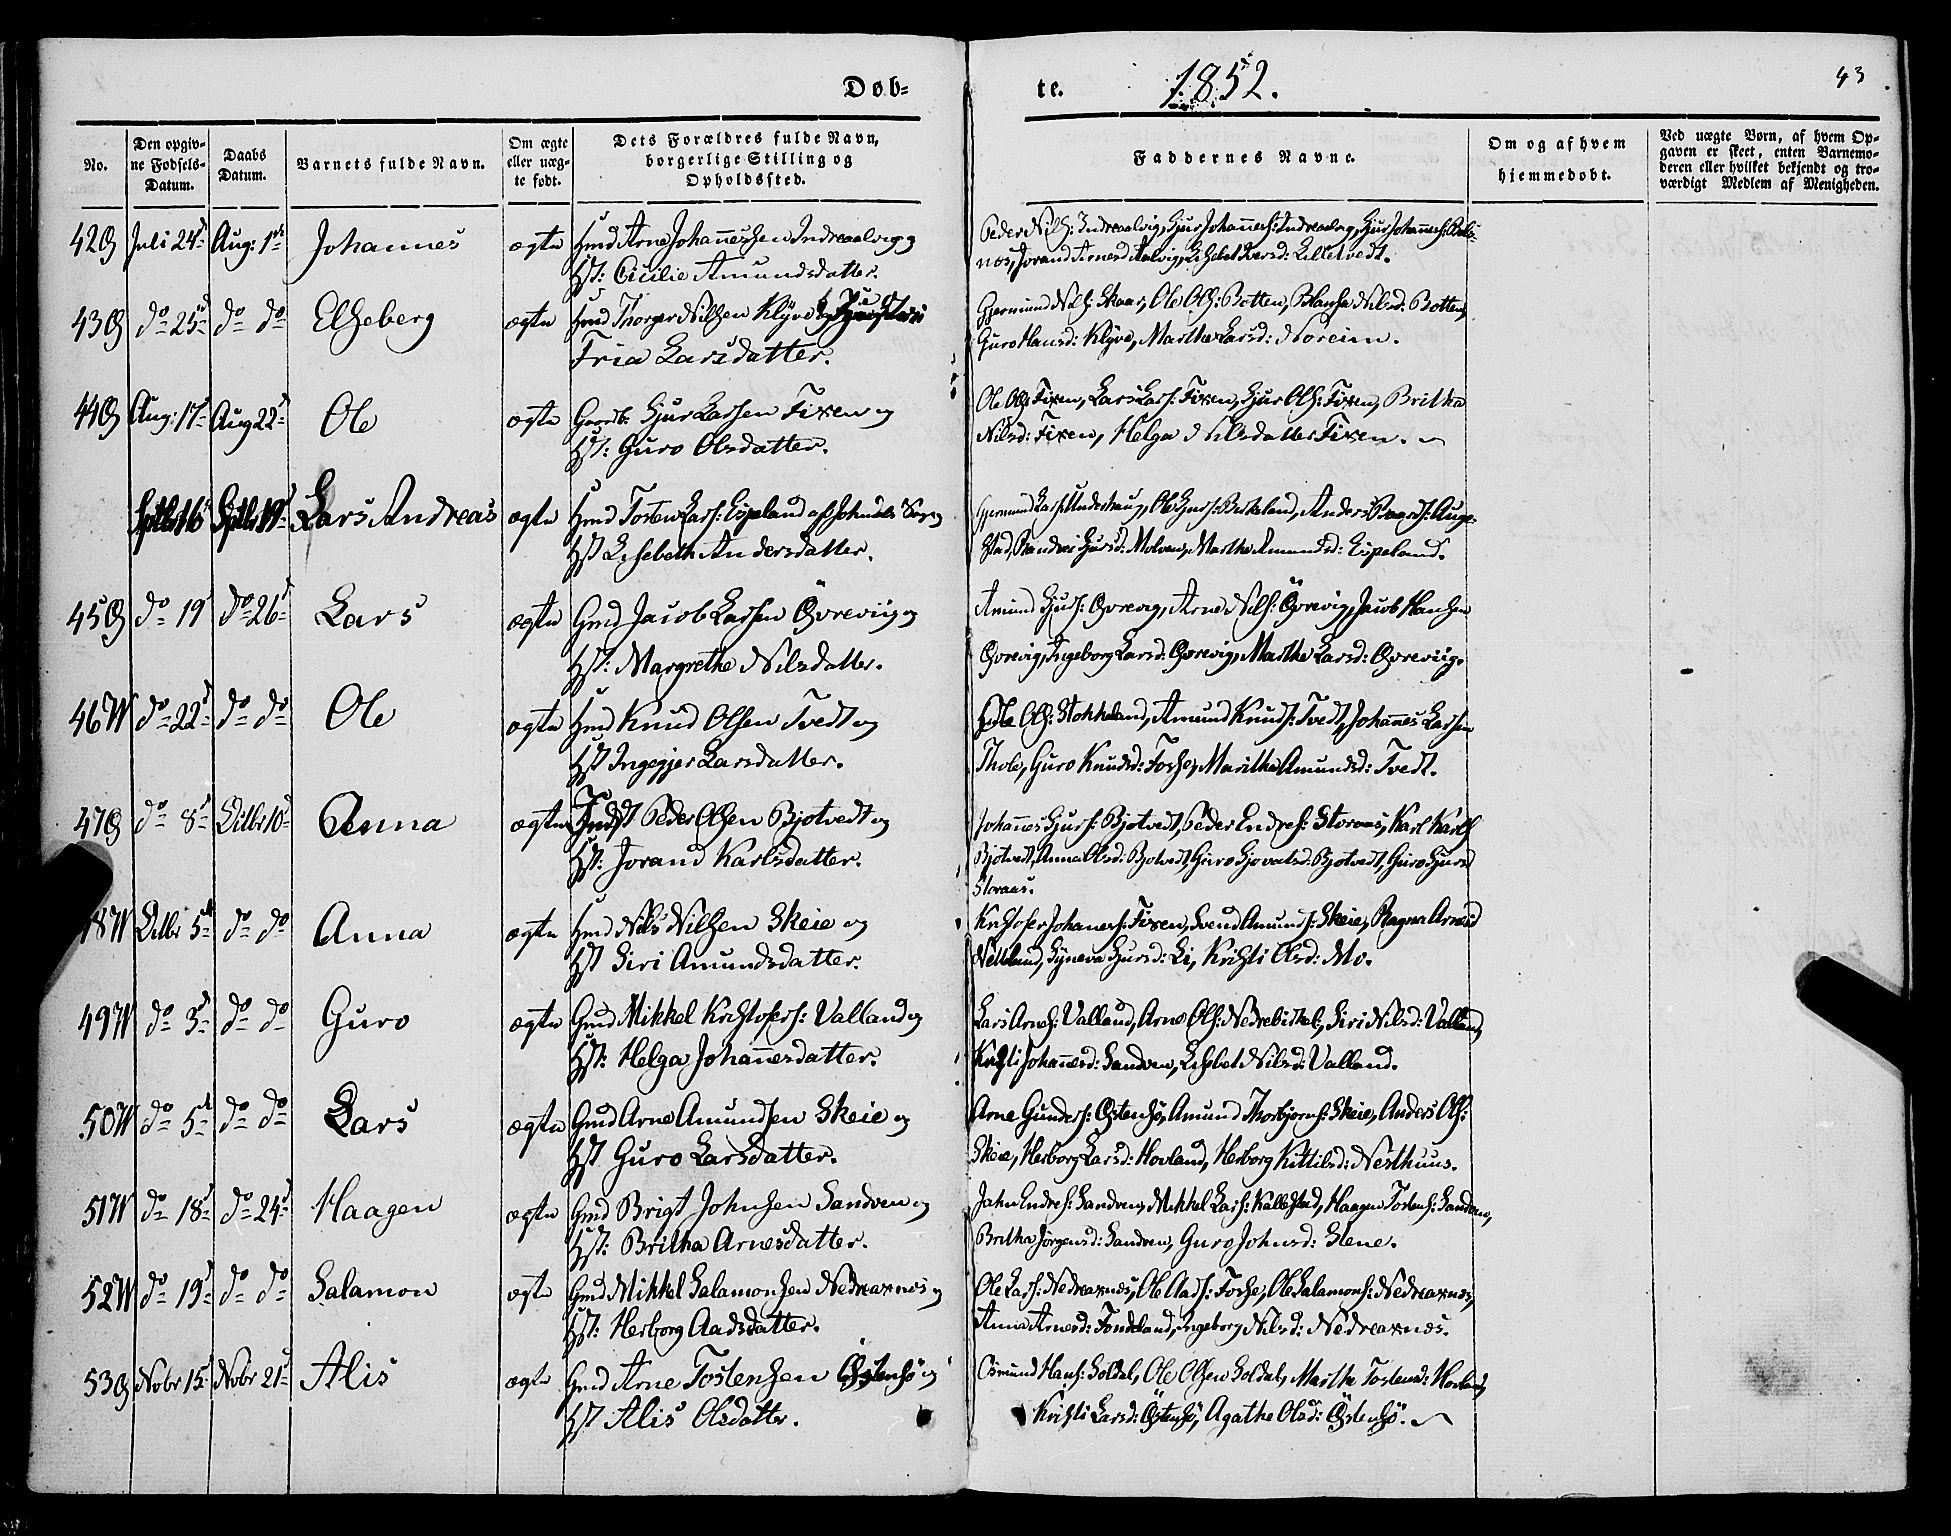 Døb=
te. 1852. 43
No.
Den opgiv-
ne Fødsels-
Datum.
Daabs
Datum.
Barnets fulde Navn.
Om ægte
eller uæg-
te født.
Dets Forældres fulde Navn,
borgerlige Stilling og
Opholdssted.
Faddernes Navne.
Om og af hvem
hjemmedøbt.
Ved uægte Børn, af hvem Op-
gaven er skeet, enten Barnemo-
deren eller hvilket bekjendt og tro-
værdigt Medlem af Menigheden.
42 Juli 24 Aug: 1 Johannes ægte Arne Johannessen Indreaalvig og
Hst: Cicilie Amundsdatter.
43 do 25 do do Elsheberg ægte Hmd Thorger Nilssen Klyve
Fria Larsdatter.
Gjermund Nilss: Skaar, Ole Ols: Botten, Nilsd: Botten,
Guro Hansd: Klyve, Marthe Larsd: Noreim.
44 Aug: 17 Aug 22 Ole ægte Gjur Larssen Fixen og
Hst: Guro Olsdatter.
Ole Ols: Fixen, Lars Lars: Fixen, Gjur Ols: Fixen, Britha
Nilsd: Fixen, Helga Nilsdatter Fixen.
Septbr 16 Septbr 19 Lars Andreas ægte Hmd Tosten Lars: Espeland
Hst Lisebeth Andersdatter.
Marthe Amundsd: Espeland.
45 do 19 do 26 Lars ægte Gmd Jacob Larssen Øvreviig og
Hst: Margrethe Nilsdatter.
Amund Gjurs: Øvrevig, Arne Nils: Øvrevig, Jacob Hanssen
Øvrevig, Ingeborg Larsd: Øvrevig, Marthe Larsd: Øvreviig.
46 W do 22 do do Ole ægte Hmd Knud Olssen Tvedt og
Hst Ingegjer Larsdatter.
Ols: Stokkeland, Amund Knuds: Tvedt, Johannes Larssen
Thole, Guro Knudsd: Fosse, Maritha Amundsd: Tvedt.
47 do 8 Octbr 10 Anna ægte Peder Olssen Bjotvedt og
Hst: Jorand Karlsdatter.
Johannes Gjurs: Bjotvedt, Peder Endres: Storaas, Karl Karls
Bjotvedt, Anna Olsd: Bjotvedt, Guro Bjotvedt, Guro Gjursd
Storaas.
48 W Octbr 5 do do Anna ægte Hmd Nils Nilssen Skeie og
Hst Siri Amundsdatter.
Kristofer Johannes: Fixen, Svend Amunds: Skeie, Ragna Arnesd
Synneva Gjursd: Li, Kristi Olsd: Mo.
49 W do 3 do do Guro ægte Gmd Mikkel Kristofers: Valland og
Hst: Helga Johannesdatter.
Lars Arnes: Valland, Arne Ols: Siri Nilsd: Valland,
Kristi Johannesd: Sandven, Lisebet Nilsd: Valland.
50 W do 5 do do Lars ægte Gmd Arne Amundsen Skeie og
Hst Guro Larsdatter.
Arne Gunders: Østensø, Amund Thorbjorns: Skeie, Anders Ols:
Skeie, Herborg Larsd: Hovland, Herborg Kittilsd: Nesthuus.
51 W do 18 do 24 Haagen ægte Gmd Brigt Johnsen Sandven og
Hst: Britha Arnesdatter.
John Endres: Sandven, Mikkel Lars: Kallestad, Haagen Tostens: Sandven,
Britha Jørgensd: Sandven, Guro Johnsd: Stene.
52 W do 19 do do Salamon ægte Gmd Mikkel Salamonsen Nedreaxnes og
Hst: Herborg Aadsdatter.
Ole Lars: Nedreaxnes, Ole Aads: Fosse, Ole Salamons: Nedreaxnes,
Anna Arnesd: Ingeborg Nilsd: Nedreaxnes.
53 Novbr 15 Novbr 21 Alis ægte Gmd Arne Tostensen Østensø og
Hst Alis Olsdatter.
Osmund Hans: Soldal, Ole Olsen Soldal, Martha Tostensd: Hovland,
Kristi Larsd: Østensø, Agathe Olsd: Østensø.